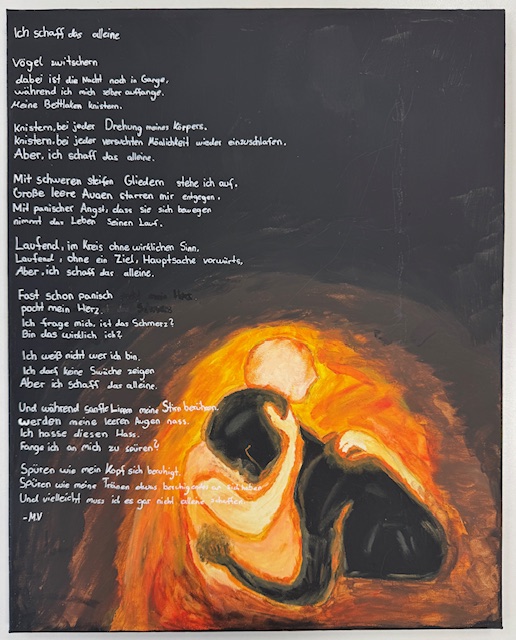 Ich schaff das alleine
Vögel zwitschern
dabei ist die Nacht noch in Gange,
während ich mich selber auffange.
Meine Bettlaken knistern.
Knistern, bei jeder Drehung meines Körpers.
Knistern, bei jeder versuchten Möglichkeit wieder einzuschlafen.
Aber, ich schaff das alleine.
Mit schweren steifen Gliedern stehe ich auf,
Große leere Augen starren mir entgegen,
Mit panischer Angst, dass sie sich bewegen
nimmt das Leben seinen Lauf.
Laufend, im Kreis ohne wirklichen Sinn,
Laufend, ohne ein Ziel, Hauptsache vorwärts,
Aber, ich schaff das alleine.
Fast schon panisch
pocht mein Herz.
Ich frage mich, ist das Schmerz?
Bin das wirklich ich?
Ich weiß nicht wer ich bin.
Ich darf keine Swäche zeigen
Aber ich schaff das alleine.
Und während sanfte Lippen meine Stirn berühren,
werden meine leeren Augen nass.
Ich hasse diesen Hass.
Fange ich an mich zu spüren?
Spüren wie mein Kopf sich beruhigt,
Spüren wie meine Tränen etwas
Und vielleicht muss ich es gar nicht alleine schaffen
-M.V